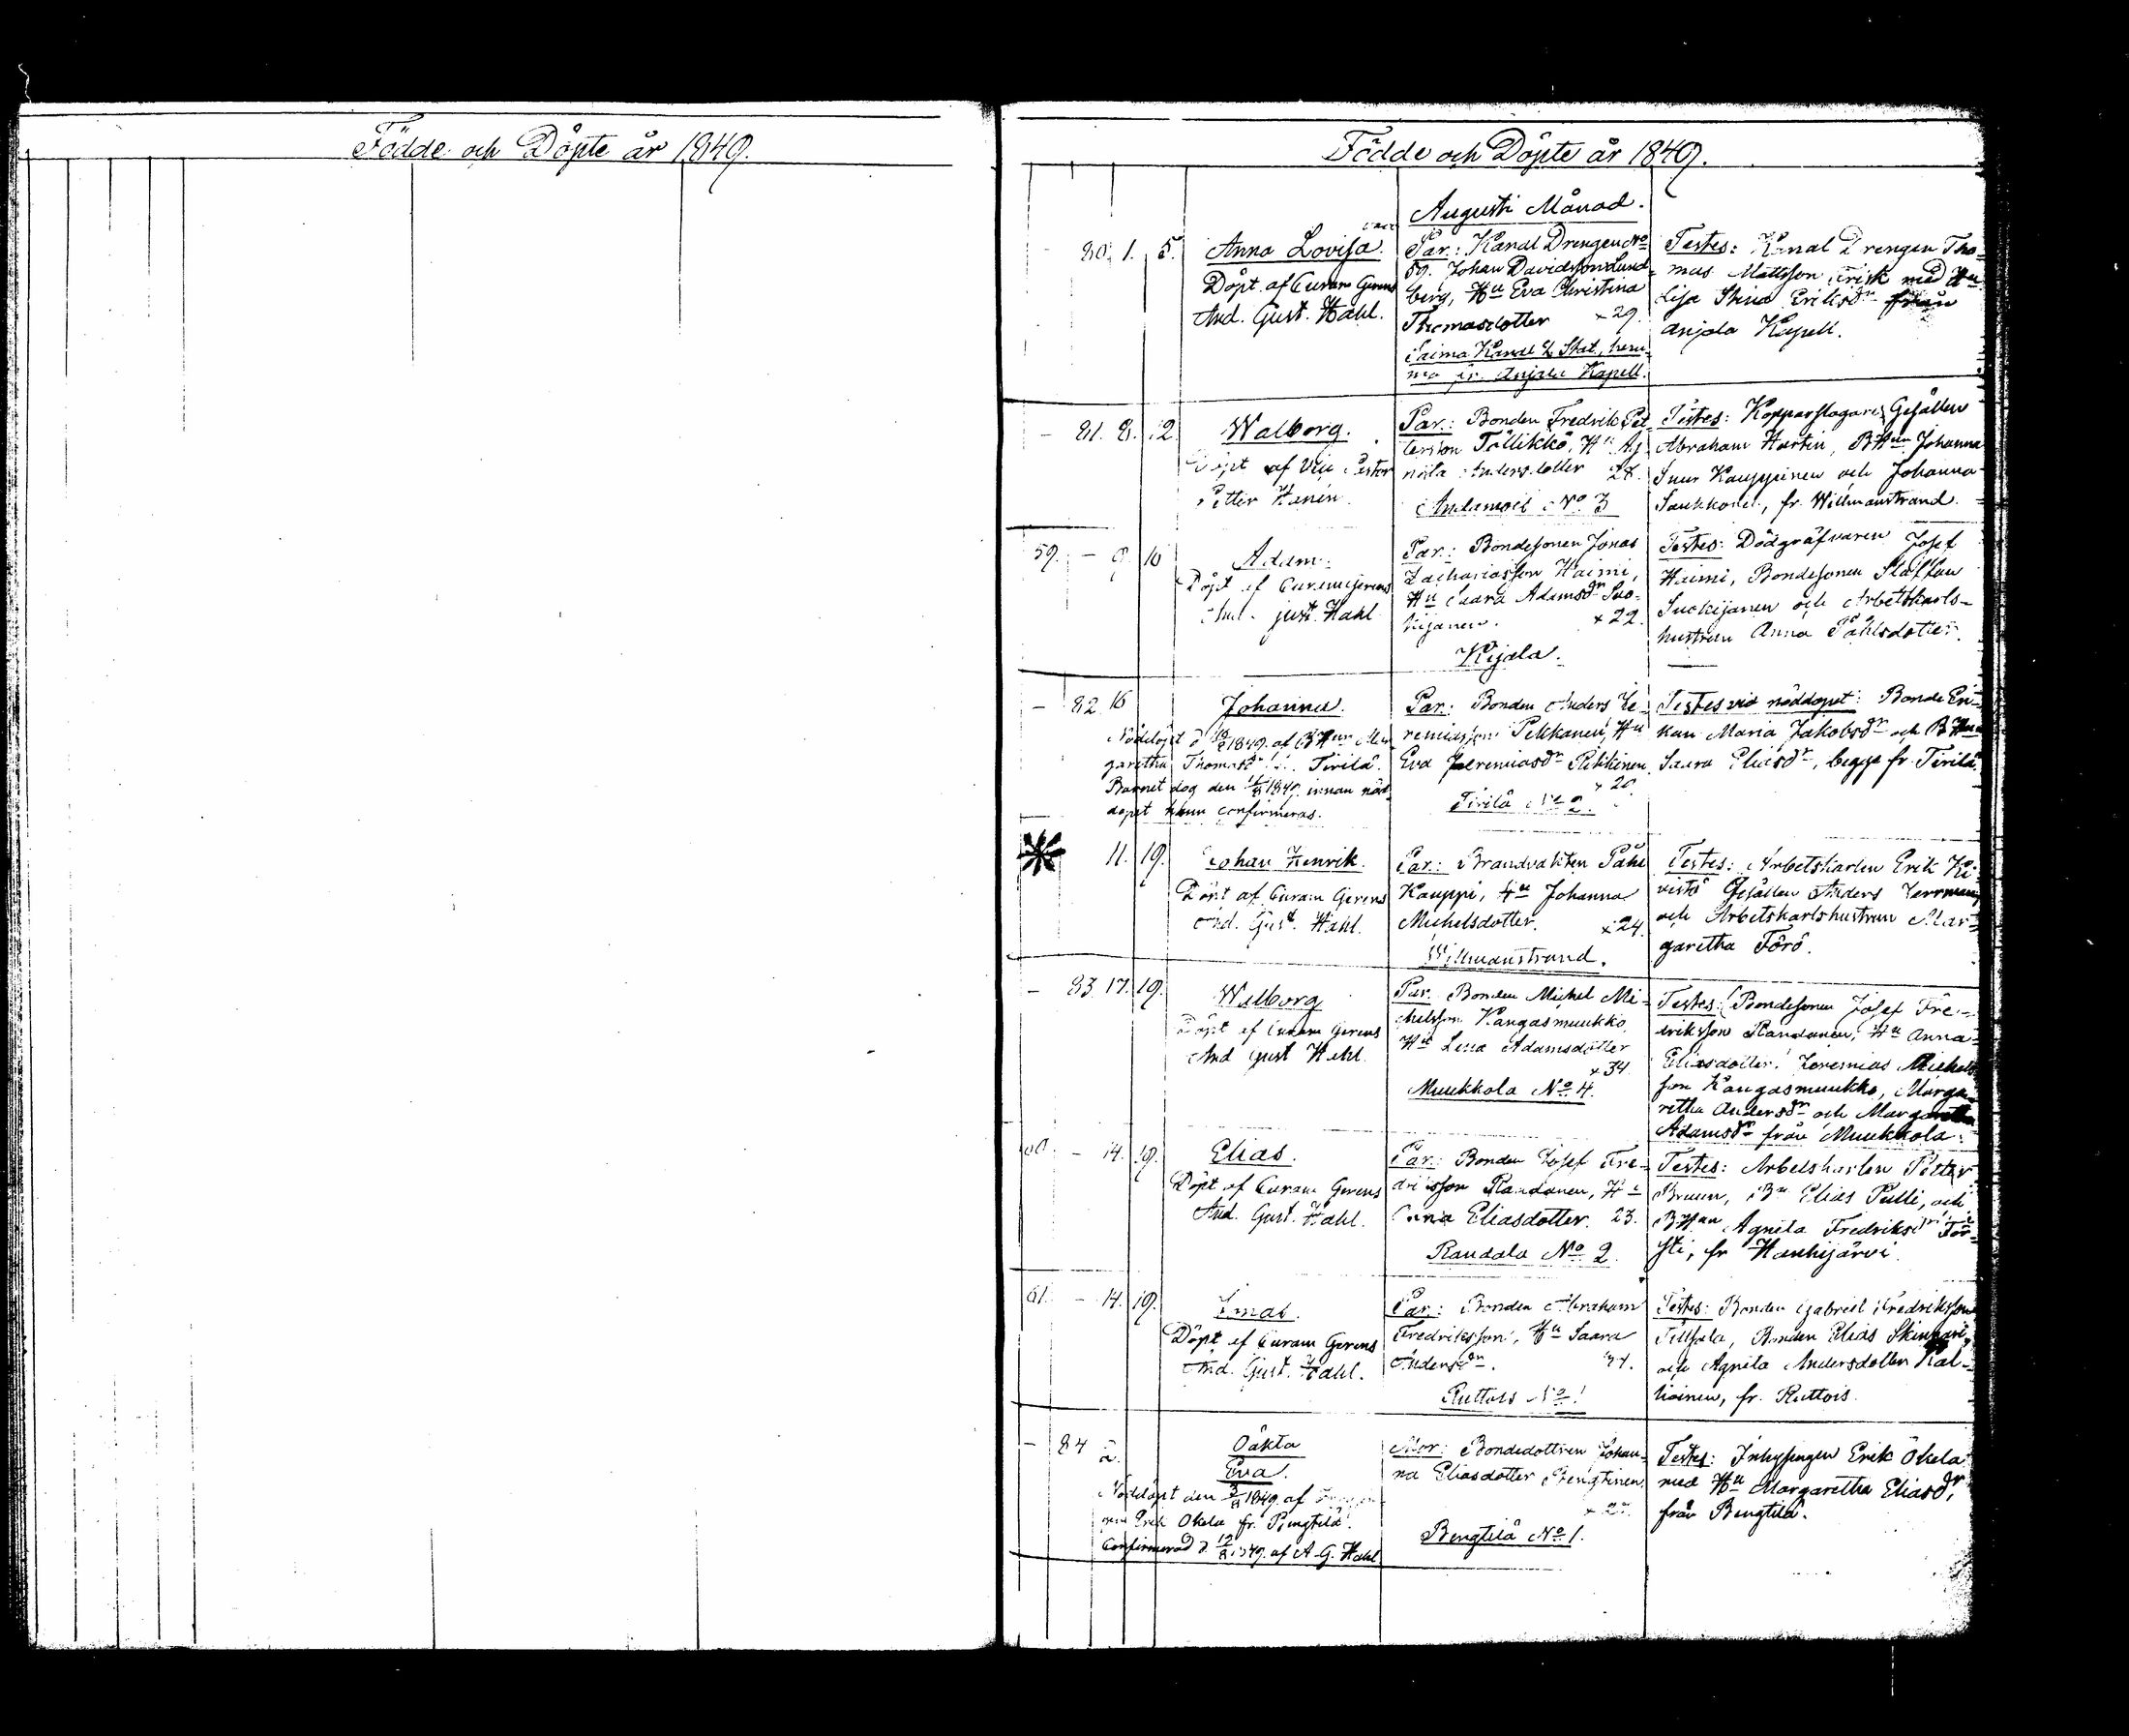 Födde och Döpte år 1849.
Födde och Döpte år 1849.
Augusti Månad.
80. 1. 5. Anna Lovisa.
Döpt af Curam Gerens
And. Gust. Hahl.
Par: Kanal Drengen No
59. Johan Davidsson Lund-
berg, Hu Eva Christina
Thomasdotter × 29.
Saima Kanal
Anjala Kapell.
Testes: Kanal Drengen Tho-
mas Mattsson Frisk med Hu
Lisa Stina Eriksdr från
Anjala Kapell.
– 81. 8. 12. Walborg.
Döpt af Vice Pastor
Petter Hanén.
Par.: Bonden Fredrik Pet-
tersson Tällikkö, Hu Ag-
näta Andersdotter 28.
No 3
Testes: Kopparslagare Gesällen
Abraham Hartin, BHun Johanna
Kauppinen och Johanna
Saukkonen, fr. Willmanstrand.
59. – 9. 10 Adam.
Döpt af Curamgerens
And. Gust. Hahl
Par.: Bondesonen Jonas
Zachariasson Haimi,
Hu Saara Adamsdr Suo-
kijanen. × 22.
Kijala.
Testes: Dödgräfvaren Josef
Haimi, Bondesonen Staffan
Suokijanen och Arbetskarls-
hustrun Anna Påhlsdotter.
– 82. 16 Johanna.
Nöddöpt d 1849. af BHun Mar-
garetha Thomasdr Tirilä.
Barnet dog den 1849. innan nöd-
dopet hann confirmeras.
Par.: Bonden Anders Je-
remiasson Pekkanen, Hu
Eva Jeremiasdr Pikkinen
× 20.
Tirilä No 2.
Testes vid nöddopet: Bonde En-
kan Maria Jakobsdr och BHun
Saara Eliasdr, begge fr. Tirilä.
11. 19. Johan Henrik.
Döpt af Curam Gerens
And. Gust. Hahl.
Par.: Brandvakten Påhl
Kauppi, Hu Johanna
Michelsdotter. × 24.
Willmanstrand.
Testes: Arbetskarlen Erik Ki-
vistö Gesällen Anders Herrman
och Arbetskarlshustrun Mar-
garetha Törö.
– 83. 17. 19. Walborg
Döpt af Curam Gerens
And Gust Hahl.
Par. Bonden Michel Mi-
chelsson Kangasmuukko
Hu Lena Adamsdotter
× 34.
Muukkola No 4.
Testes: Bondesonen Josef Fre-
driksson Randanen, Hu Anna
Eliasdotter. Jeremias Michels-
son Kangasmuukko, Marga-
retha Andersdr och Margaretha
Adamsdr från Muukkola.
60. – 14. 19. Elias.
Döpt af Curam Gerens
And. Gust. Hahl.
Par.: Bonden Josef Fre-
driksson Randanen, Hu
Anna Eliasdotter. 23.
Randala No 2.
Testes: Arbetskarlen Petter
Bruun, Bn Elias Pulli, och
BHun Agneta Fredriksdr Tör-
sti, fr Hanhijärvi.
61. – 14. 19. Jonas.
Döpt af Curam Gerens
And. Gust. Hahl.
Par.: Bonden Abraham
Fredriksson, Hu Saara
Andersdr.
Ruttois No 1
Testes: Bonden Gabriel Fredriksson
Bonden Elias Skinnari,
och Agneta Andersdotter
fr. Ruttois.
– 84 Oäkta
Eva.
Nöddöpt den 3/8 1849. af
Erik Okela fr. Bengtilä.
Confirmerad d. 12/8 1849. af A. G. Hahl
Mor: Bondedottren Johan-
na Eliasdotter Bengtinen
Bengtilä No 1.
Testes: Inhysingen Erik Okela
med Hu Margaretha Eliasdr,
från Bengtilä.